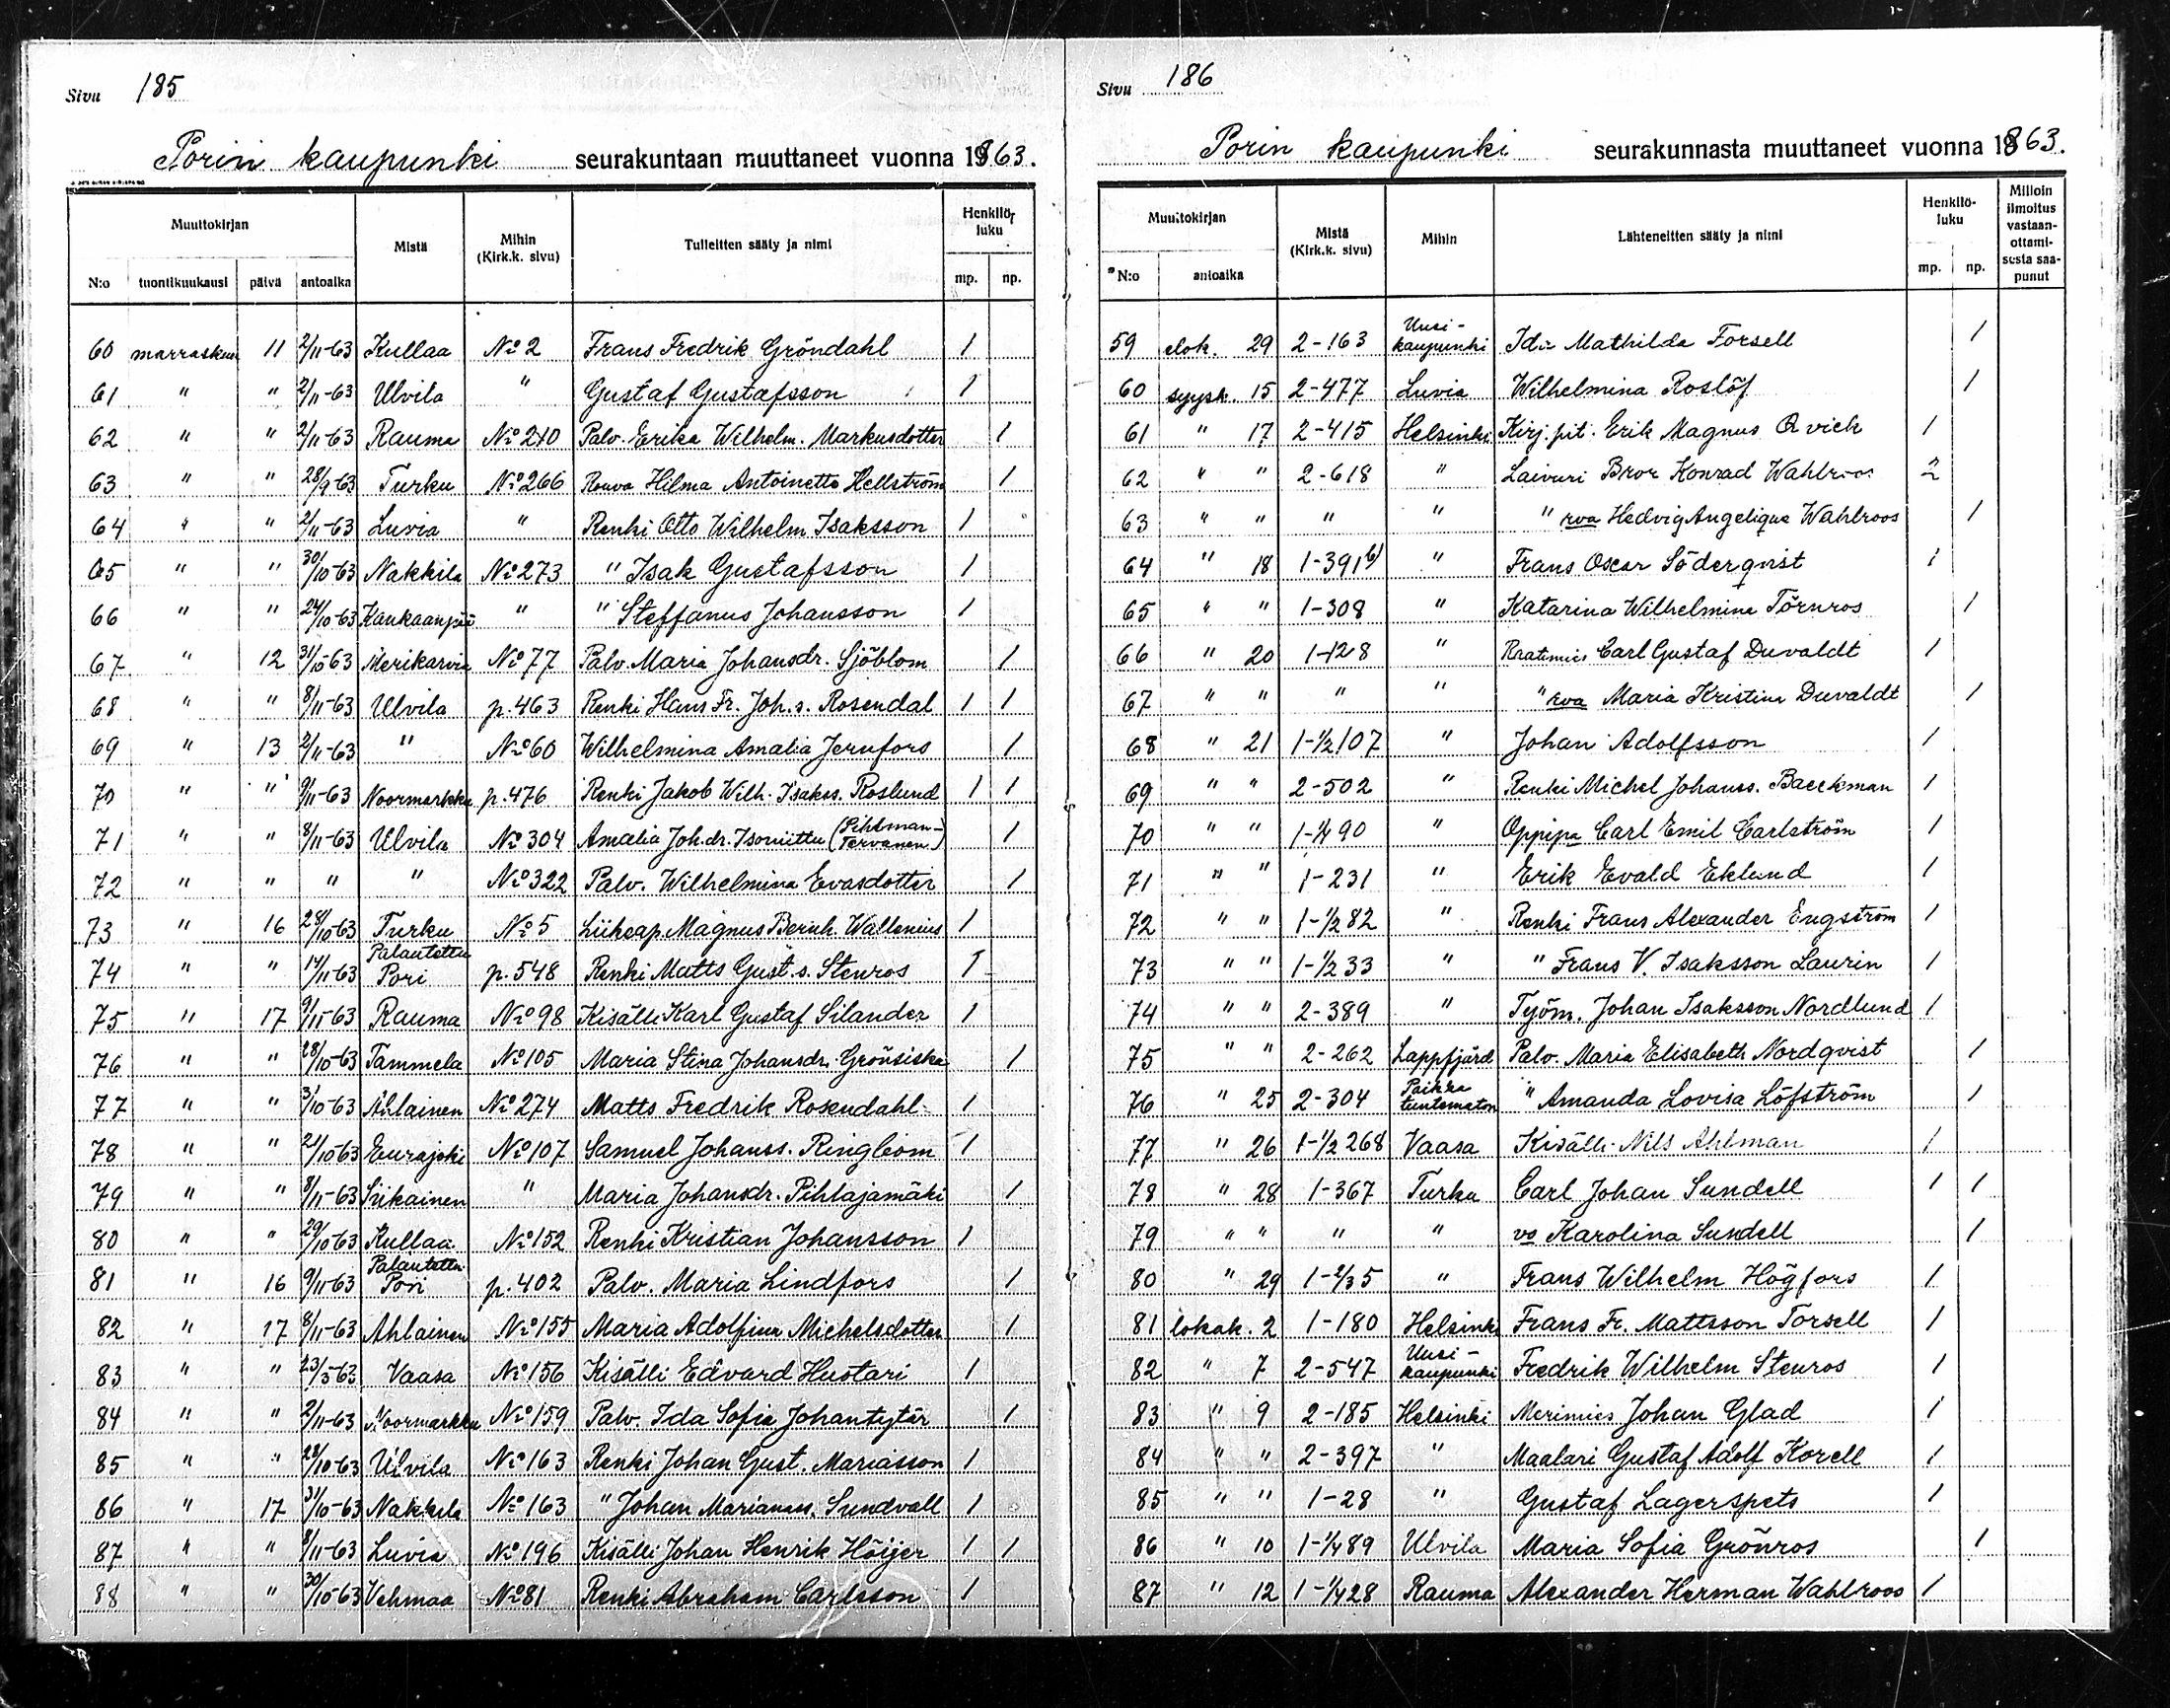 Sivu 185
Porin kaupunki seurakuntaan muuttaneet vuonna 1863.
Muuttokirjan Mistä Mihin (Kirk.k. sivu) Tulleitten sääty ja nimi Henkilöluku
N:o tuontikuukausi päivä antoaika mp. np.
60 marraskuu 11 2/11-63 Kullaa No 2 Frans Fredrik Gröndahl 1
61 " " 2/11-63 Ulvila " Gustaf Gustafsson 1
62 " " 2/11-63 Rauma No 210 Palv. Erika Wilhelm. Markusdotter 1
63 " " 28/9-63 Turku No 266 Rouva Hilma Antoinette Hellström 1
64 " " 2/11-63 Luvia " Renki Otto Wilhelm Isaksson 1
65 " " 30/10-63 Nakkila No 273 " Isak Gustafsson 1
66 " " 24/10-63 Kankaanpää " " Steffanus Johansson 1
67 " 12 31/10-63 Merikarvia No 77 Palv. Maria Johansdr. Sjöblom 1
68 " " 8/11-63 Ulvila p. 463 Renki Hans Fr. Joh.s. Rosendal 1 1
69 " 13 2/11-63 " No 60 Wilhelmina Amalia Jernfors 1
70 " " 9/11-63 Noormarkku p. 476 Renki Jakob Wilh. Isakss. Roslund 1 1
71 " " 8/11-63 Ulvila No 304 Amalia Joh.dr. Isoniittu (Pihlman-Tervanen) 1
72 " " " " No 322 Palv. Wilhelmina Evasdotter 1
73 " 16 28/10-63 Turku No 5 Liikeap. Magnus Bernh. Wallenius 1
74 " " 14/11-63 Palautettu Pori p. 548 Renki Matts Gust.s. Stenros 1
75 " 17 9/11-63 Rauma No 98 Kisälli Karl Gustaf Silander 1
76 " " 28/10-63 Tammela No 105 Maria Stina Johansdr. Grönsiska 1
77 " " 3/10-63 Ahlainen No 274 Matts Fredrik Rosendahl 1
78 " " 21/10-63 Eurajoki No 107 Samuel Johanss. Ringbom 1
79 " " 8/11-63 Siikainen " Maria Johansdr. Pihlajamäki 1
80 " " 29/10-63 Kullaa No 152 Renki Kristian Johansson 1
81 " 16 9/11-63 Palautettu Pori p. 402 Palv. Maria Lindfors 1
82 " 17 8/11-63 Ahlainen No 155 Maria Adolfina Michelsdotter 1
83 " " 23/3-63 Vaasa No 156 Kisälli Edvard Huotari 1
84 " " 2/11-63 Noormarkku No 159 Palv. Ida Sofia Johantytär 1
85 " " 28/10-63 Ulvila No 163 Renki Johan Gust. Mariasson 1
86 " 17 31/10-63 Nakkila No 163 " Johan Marianss. Sundvall 1
87 " " 8/11-63 Luvia No 196 Kisälli Johan Henrik Höijer 1 1
88 " " 30/10-63 Vehmaa No 81 Renki Abraham Carlsson 1
Sivu 186
Porin kaupunki seurakunnasta muuttaneet vuonna 1863.
Muuttokirjan Mistä (Kirk.k. sivu) Mihin Lähteneitten sääty ja nimi Henkilöluku Milloin ilmoitus vastaanottamisesta saapunut
N:o antoaika mp. np.
59 elok. 29 2-163 Uusikaupunki Ida Mathilda Forsell 1
60 syysk. 15 2-477 Luvia Wilhelmina Roslöf 1
61 " 17 2-415 Helsinki Kirj.pit. Erik Magnus Qvick 1
62 " " 2-618 " Laivuri Bror Konrad Wahlroos 2
63 " " " " " rva Hedvig Angelique Wahlroos 1
64 " 18 1-391 b) " Frans Oscar Söderqvist 1
65 " " 1-308 " Katarina Wilhelmina Törnros 1
66 " 20 1-128 " Raatimies Carl Gustaf Duvaldt 1
67 " " " " " rva Maria Kristina Duvaldt 1
68 " 21 1-1/2 107 " Johan Adolfsson 1
69 " " 2-502 " Renki Michel Johanss. Baeckman 1
70 " " 1-1/4 90 " Oppipa Carl Emil Carlström 1
71 " " 1-231 " Erik Evald Eklund 1
72 " " 1-1/2 82 " Renki Frans Alexander Engström 1
73 " " 1-1/2 33 " " Frans V. Isaksson Laurin 1
74 " " 2-389 " Työm. Johan Isaksson Nordlund 1
75 " " 2-262 Lappfjärd Palv. Maria Elisabeth Nordqvist 1
76 " 25 2-304 Paikka tuntematon " Amanda Lovisa Löfström 1
77 " 26 1-1/2 268 Vaasa Kisälli Nils Ahlman 1
78 " 28 1-367 Turku Carl Johan Sundell 1 1
79 " " " " vo Karolina Sundell 1
80 " 29 1-2/3 5 " Frans Wilhelm Högfors 1
81 lokak. 2 1-180 Helsinki Frans Fr. Mattsson Torsell 1
82 " 7 2-547 Uusikaupunki Fredrik Wilhelm Stenros 1
83 " 9 2-185 Helsinki Merimies Johan Glad 1
84 " " 2-397 " Maalari Gustaf Adolf Korell 1
85 " " 1-28 " Gustaf Lagerspets 1
86 " 10 1-1/4 89 Ulvila Maria Sofia Grönros 1
87 " 12 1-1/4 28 Rauma Alexander Herman Wahlroos 1